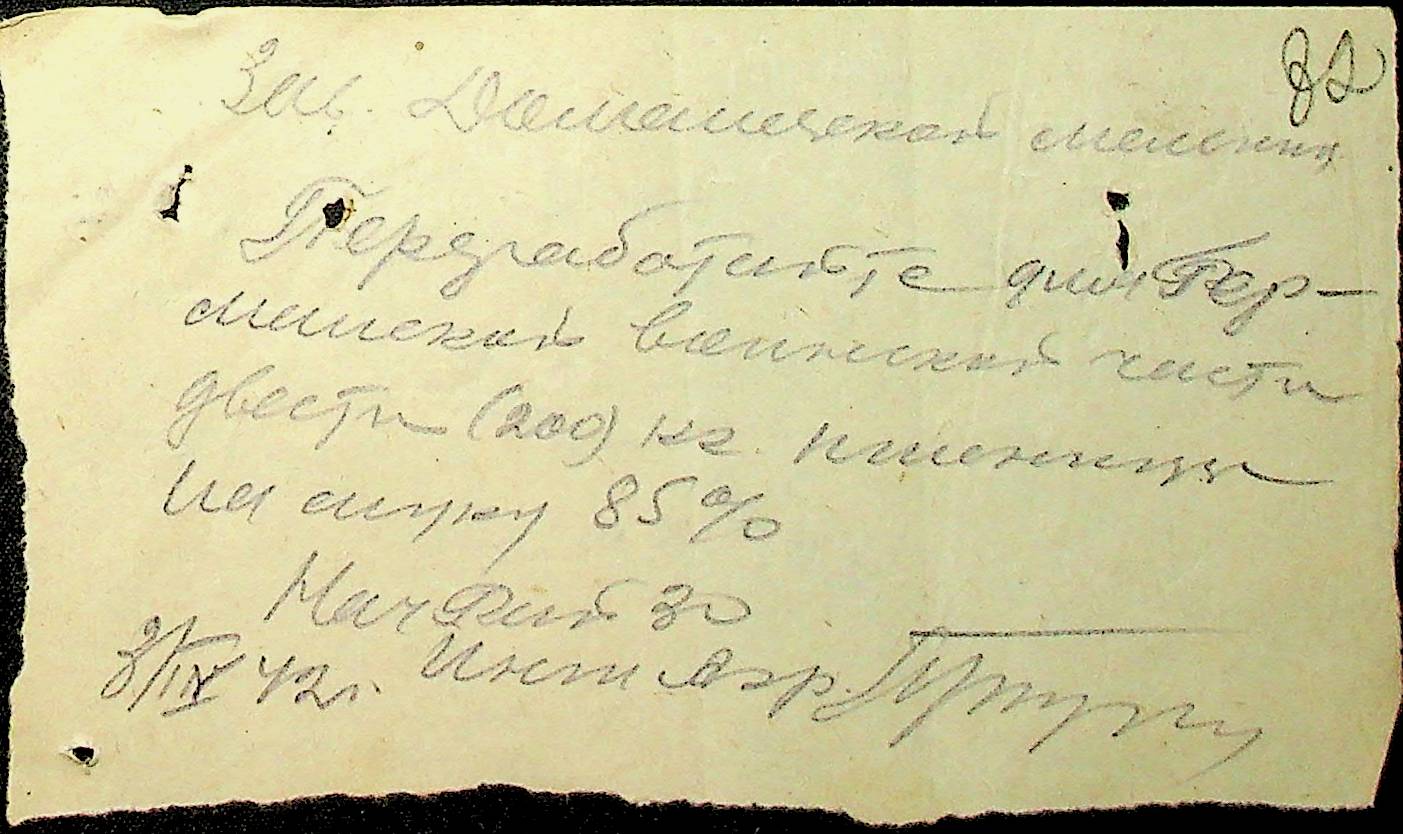 82
Зав. Домашевской мельниц
Переработайте для Гер-
манской воинской части
двести (200) кг пшеницы
на муку 85%
Нач Рай ЗО
3/IX 42 г. Инж Агр.